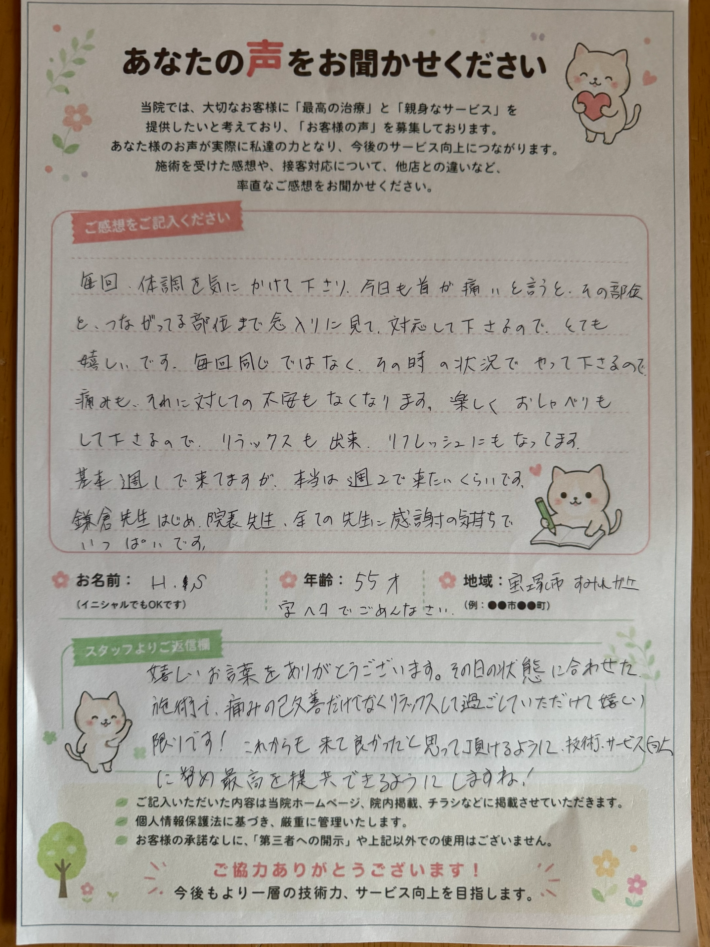 あなたの声をお聞かせください
当院では、大切なお客様に「最高の治療」と「親身なサービス」を
提供したいと考えており、「お客様の声」を募集しております。
あなた様のお声が実際に私達の力となり、今後のサービス向上につながります。
施術を受けた感想や、接客対応について、他店との違いなど、
率直なご感想をお聞かせください。
ご感想をご記入ください
毎回、体調を気にかけて下さり、今日も首が痛いと言うと、その部位
と、つながってる部位まで念入りに見て、対応して下さるので、とても
嬉しいです。毎回同じではなく、その時の状況でやって下さるので
痛みも、それに対しての不安もなくなります。楽しくおしゃべりも
して下さるので、リラックスも出来、リフレッシュにもなってます。
基本週1で来てますが、本当は週2で来たいくらいです。
鎌倉先生はじめ、院長先生、全ての先生に感謝の気持ちで
いっぱいです。
お名前： H.S
年齢： 55才
地域： 宝塚市 すみれガ丘
（イニシャルでもOKです）
字ヘタでごめんなさい。
（例：●●市●●町）
スタッフよりご返信欄
嬉しいお言葉をありがとうございます。その日の状態に合わせた
施術で、痛みの改善だけでなくリラックスして過ごしていただけて嬉しい
限りです！ これからも来て良かったと思って頂けるように、技術、サービス向上
に努め最高を提供できるようにしますね！
ご記入いただいた内容は当院ホームページ、院内掲載、チラシなどに掲載させていただきます。
個人情報保護法に基づき、厳重に管理いたします。
お客様の承諾なしに、「第三者への開示」や上記以外での使用はございません。
ご協力ありがとうございます！
今後もより一層の技術力、サービス向上を目指します。